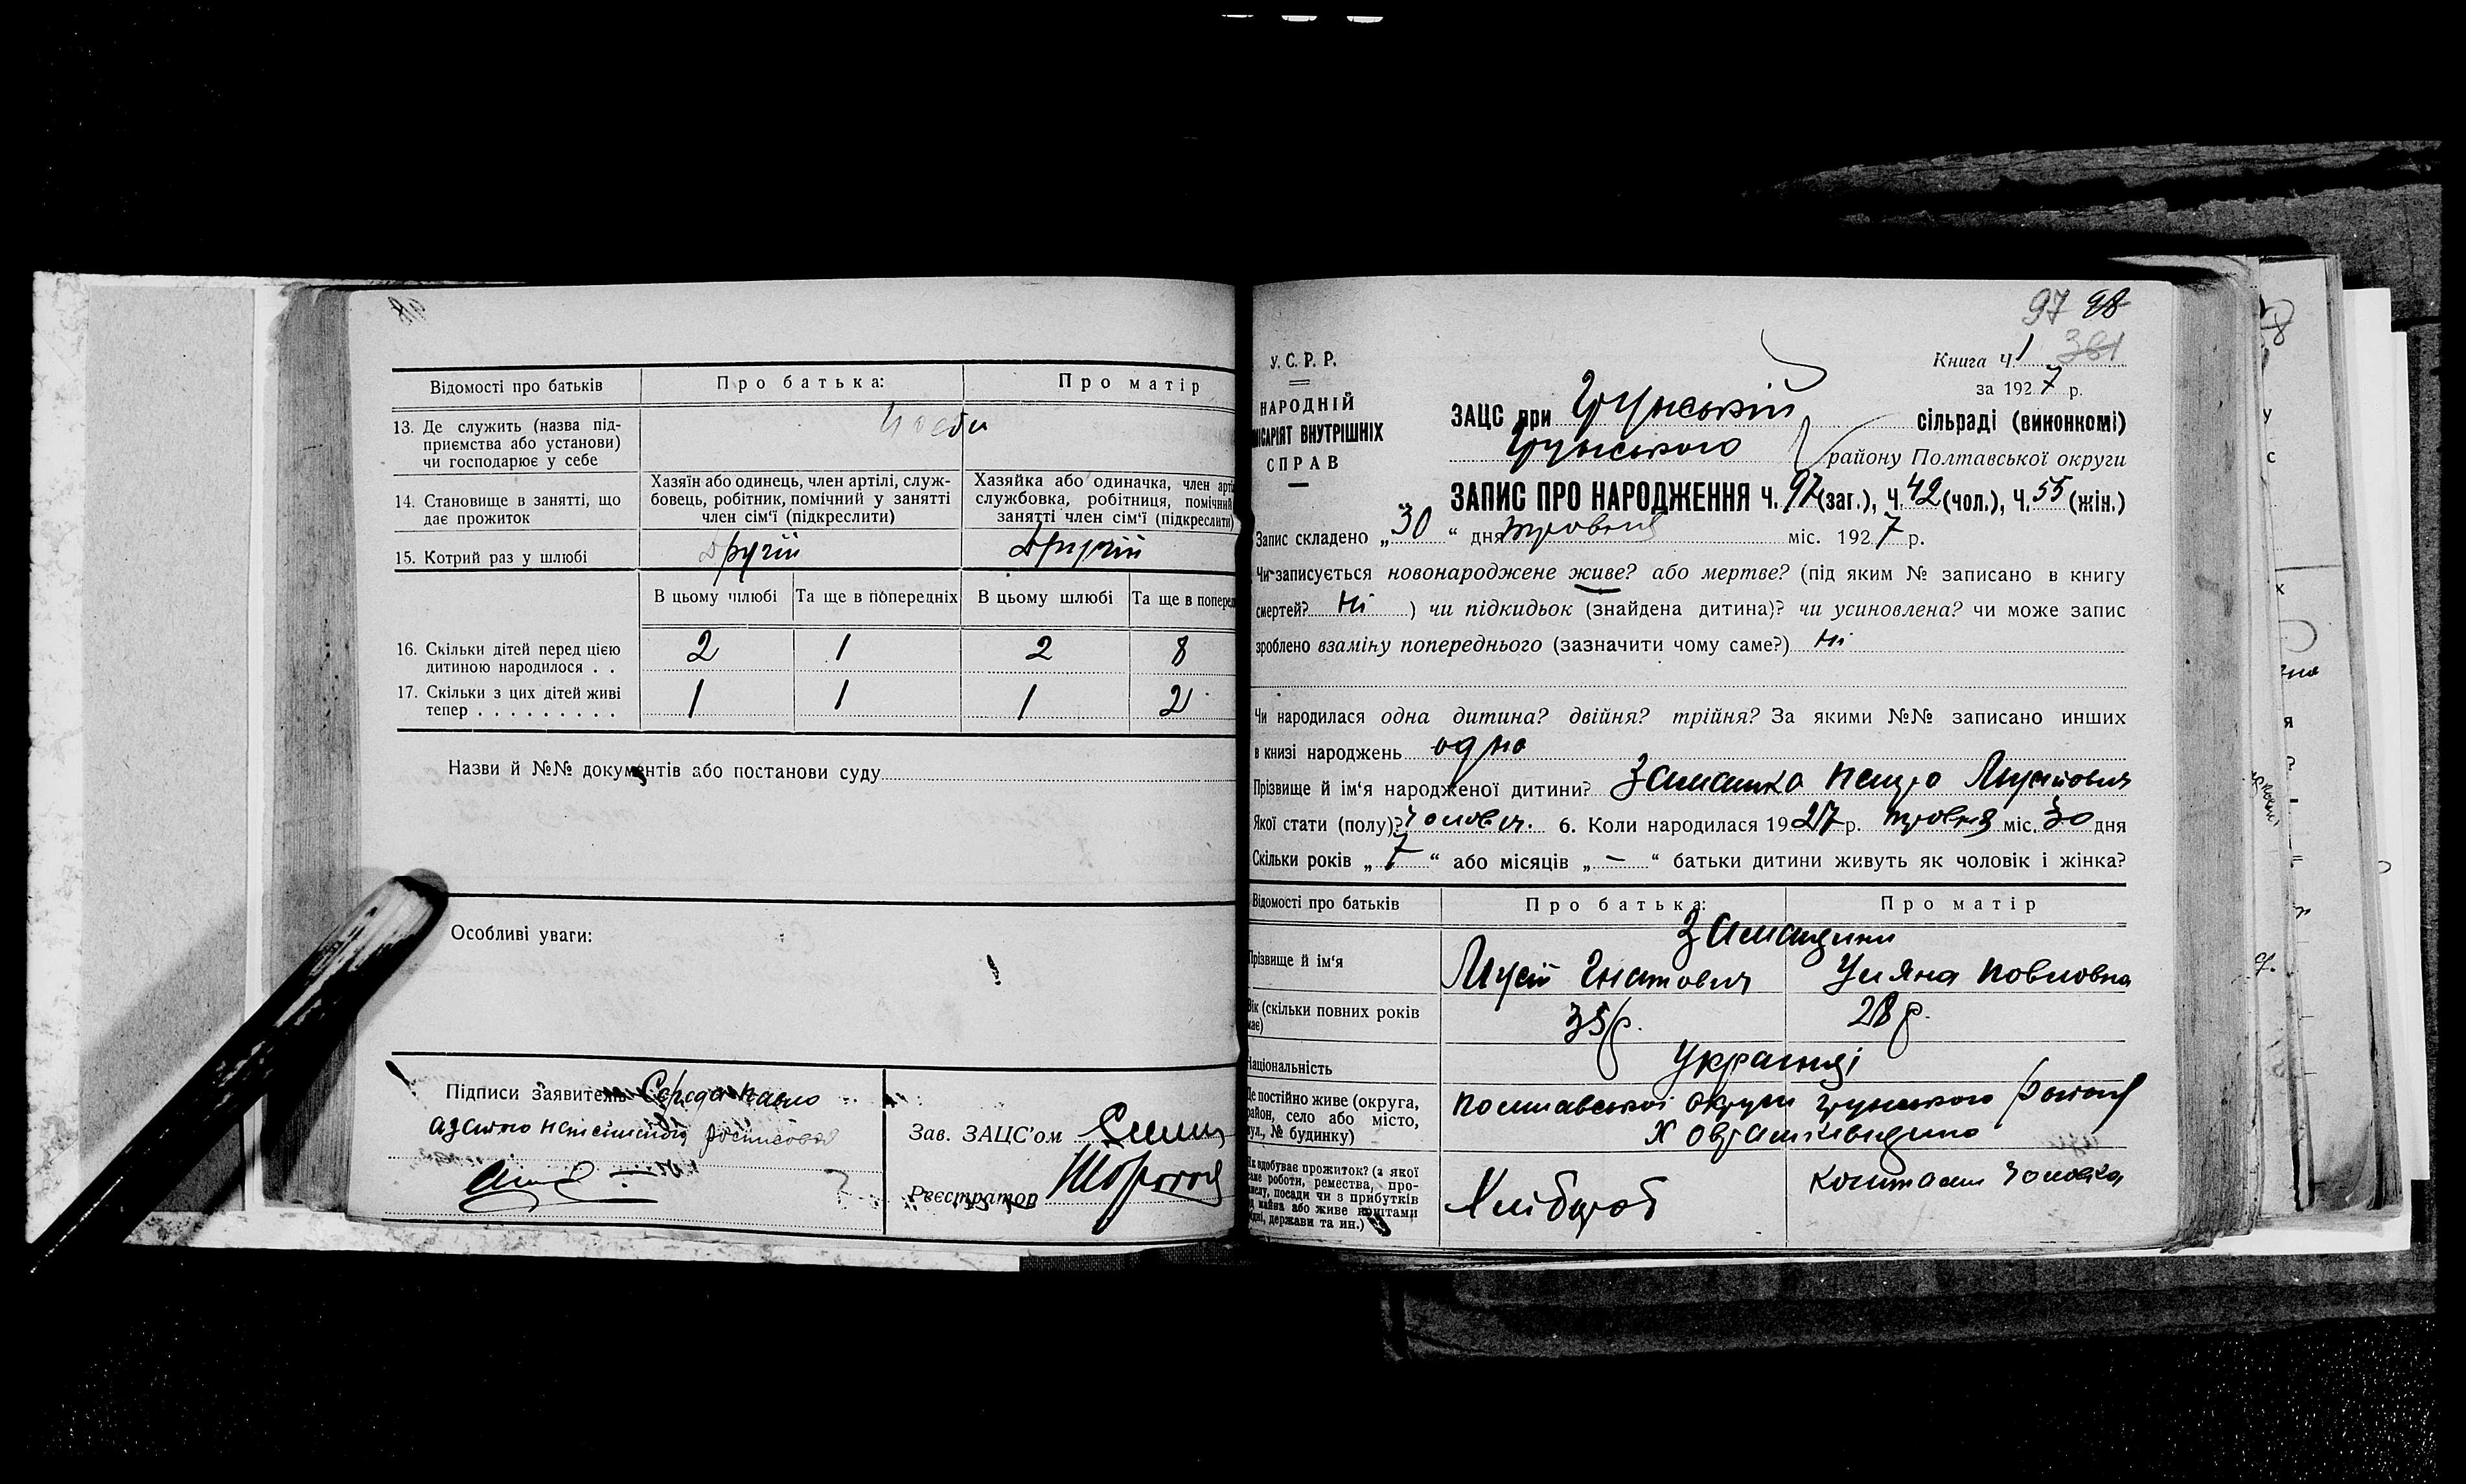 Відомості про батьків
Про батька:
Про матір
13. Де служить (назва під-
приємства або установи)
чи господарює у себе
У себи
14. Становище в занятті, що
дає прожиток
Хазяїн або одинець, член артілі, служ-
бовець, робітник, помічний у занятті
член сім'ї (підкреслити)
Хазяйка або одиначка, член арті
службовка, робітниця, помічний
занятті член сім'ї (підкреслити)
15. Котрий раз у шлюбі
Другій
Другій
В цьому шлюбі
Та ще в попередніх
В цьому шлюбі
Та ще в поперед
16. Скільки дітей перед цією
дитиною народилося . .
2 1 2 8
17. Скільки з цих дітей живі
тепер . . . . . . . . .
1 1 1 2
Назви й №№ документів або постанови суду
Особливі уваги:
Підписи заявитель Середа Павло
Зав. ЗАЦС'ом
Реєстратор
97 98
У.С.Р.Р.
Книга Ч. 1 381
за 1927 р.
НАРОДНІЙ
ІСАРІЯТ ВНУТРІШНІХ
СПРАВ
ЗАЦС при Грунській сільраді (виконкомі)
Грунського району Полтавської округи
ЗАПИС ПРО НАРОДЖЕННЯ Ч. 97 (заг.), Ч. 42 (чол.), Ч. 55 (жін.)
Запис складено „30“ дня травня міс. 1927 р.
Чи записується новонароджене живе? або мертве? (під яким № записано в книгу
смертей? Ні ) чи підкидьок (знайдена дитина)? чи усиновлена? чи може запис
зроблено взаміну попереднього (зазначити чому саме?) Ні
Чи народилася одна дитина? двійня? трійня? За якими №№ записано инших
в книзі народжень одна
Прізвище й ім'я народженої дитини? Петро Мусійович
Якої стати (полу)? чоловіч. 6. Коли народилася 1927 р. травня міс. 30 дня
Скільки років „7“ або місяців „—“ батьки дитини живуть як чоловік і жінка?
Відомості про батьків
Про батька:
Про матір
Прізвище й ім'я
Мусій Гнатович
Уляна Повловна
Вік (скільки повних років
має)
35 р.
28 р.
Національність
Українці
Де постійно живе (округа,
район, село або місто,
вул., № будинку)
Полтавської округи Грунського району
Як здобуває прожиток? (з якої
саме роботи, ремества, про-
мислу, посади чи з прибутків
од майна або живе коштами
рідні, держави та ин.)
Хлібороб
Коштами чоловіка